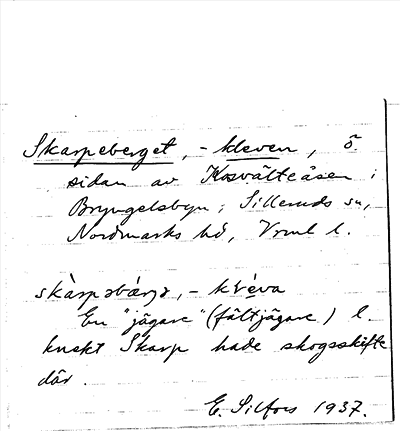 Skarpeberget, -kleven, ö
sidan av Kosvälteåsen i
Bryngelsbyn i Silleruds sn,
Nordmarks hd, Vrml l.
skàrpəbærjə, -kléva
En "jägare" (fältjägare) l.
knekt Skarp hade skogsskifte
där.
E. Silfors 1937.